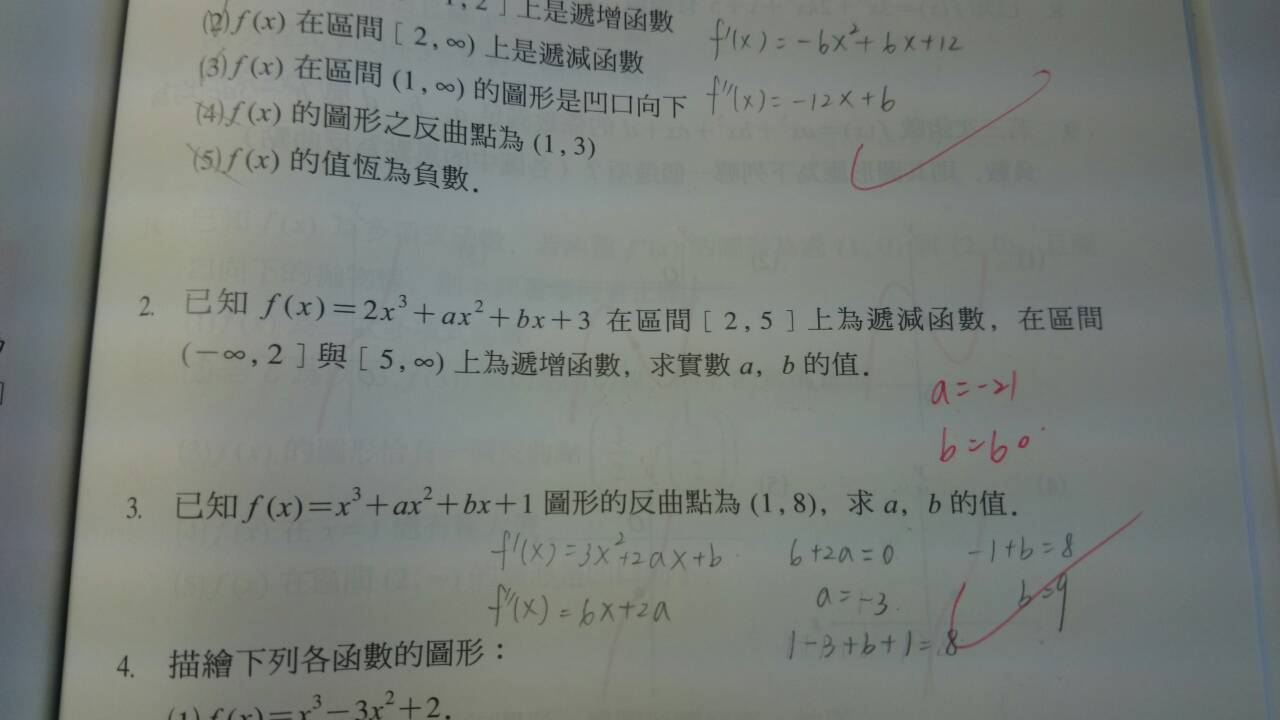 , 2 ] 上是遞增函數
(2) f(x) 在區間 [ 2 , ∞) 上是遞減函數
f'(x) = -6x²+6x+12
(3) f(x) 在區間 (1 , ∞) 的圖形是凹口向下
f''(x) = -12x+6
(4) f(x) 的圖形之反曲點為 (1 , 3)
(5) f(x) 的值恆為負數.
2. 已知 f(x)=2x³+ax²+bx+3 在區間 [ 2 , 5 ] 上為遞減函數, 在區間
(-∞, 2 ] 與 [ 5, ∞) 上為遞增函數, 求實數 a, b 的值.
a=-21
b=60
3. 已知 f(x)=x³+ax²+bx+1 圖形的反曲點為 (1 , 8), 求 a, b 的值.
f'(x) = 3x²+2ax+b 6+2a=0 -1+b=8
f''(x) = 6x+2a a=-3 b=9
1-3+b+1=8
4. 描繪下列各函數的圖形：
(1) f(x)=x³-3x²+2.